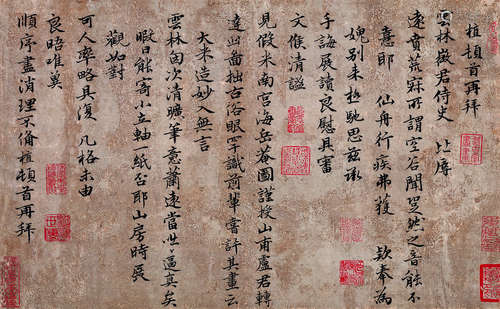 植頓首再拜
雲林徵君侍史 比辱
遠賁荒寂所謂空谷聞跫然之音能不
意耶 仙舟行疾弗獲 款奉為
媿別來極馳思茲承
手誨展讀良慰具審
文候清謐
見假米南宮海岳菴圖謹授山甫盧君轉
達此畵拙古俗眼罕識前輩嘗評其畫云
大米造妙入無言
雲林因次清曠筆意蕭遠當世逼真矣
暇日能寄小立軸一紙否耶山房時展
觀如對
可人率略具復 凡格未由
良晤唯奠
順序盡消理不備植頓首再拜